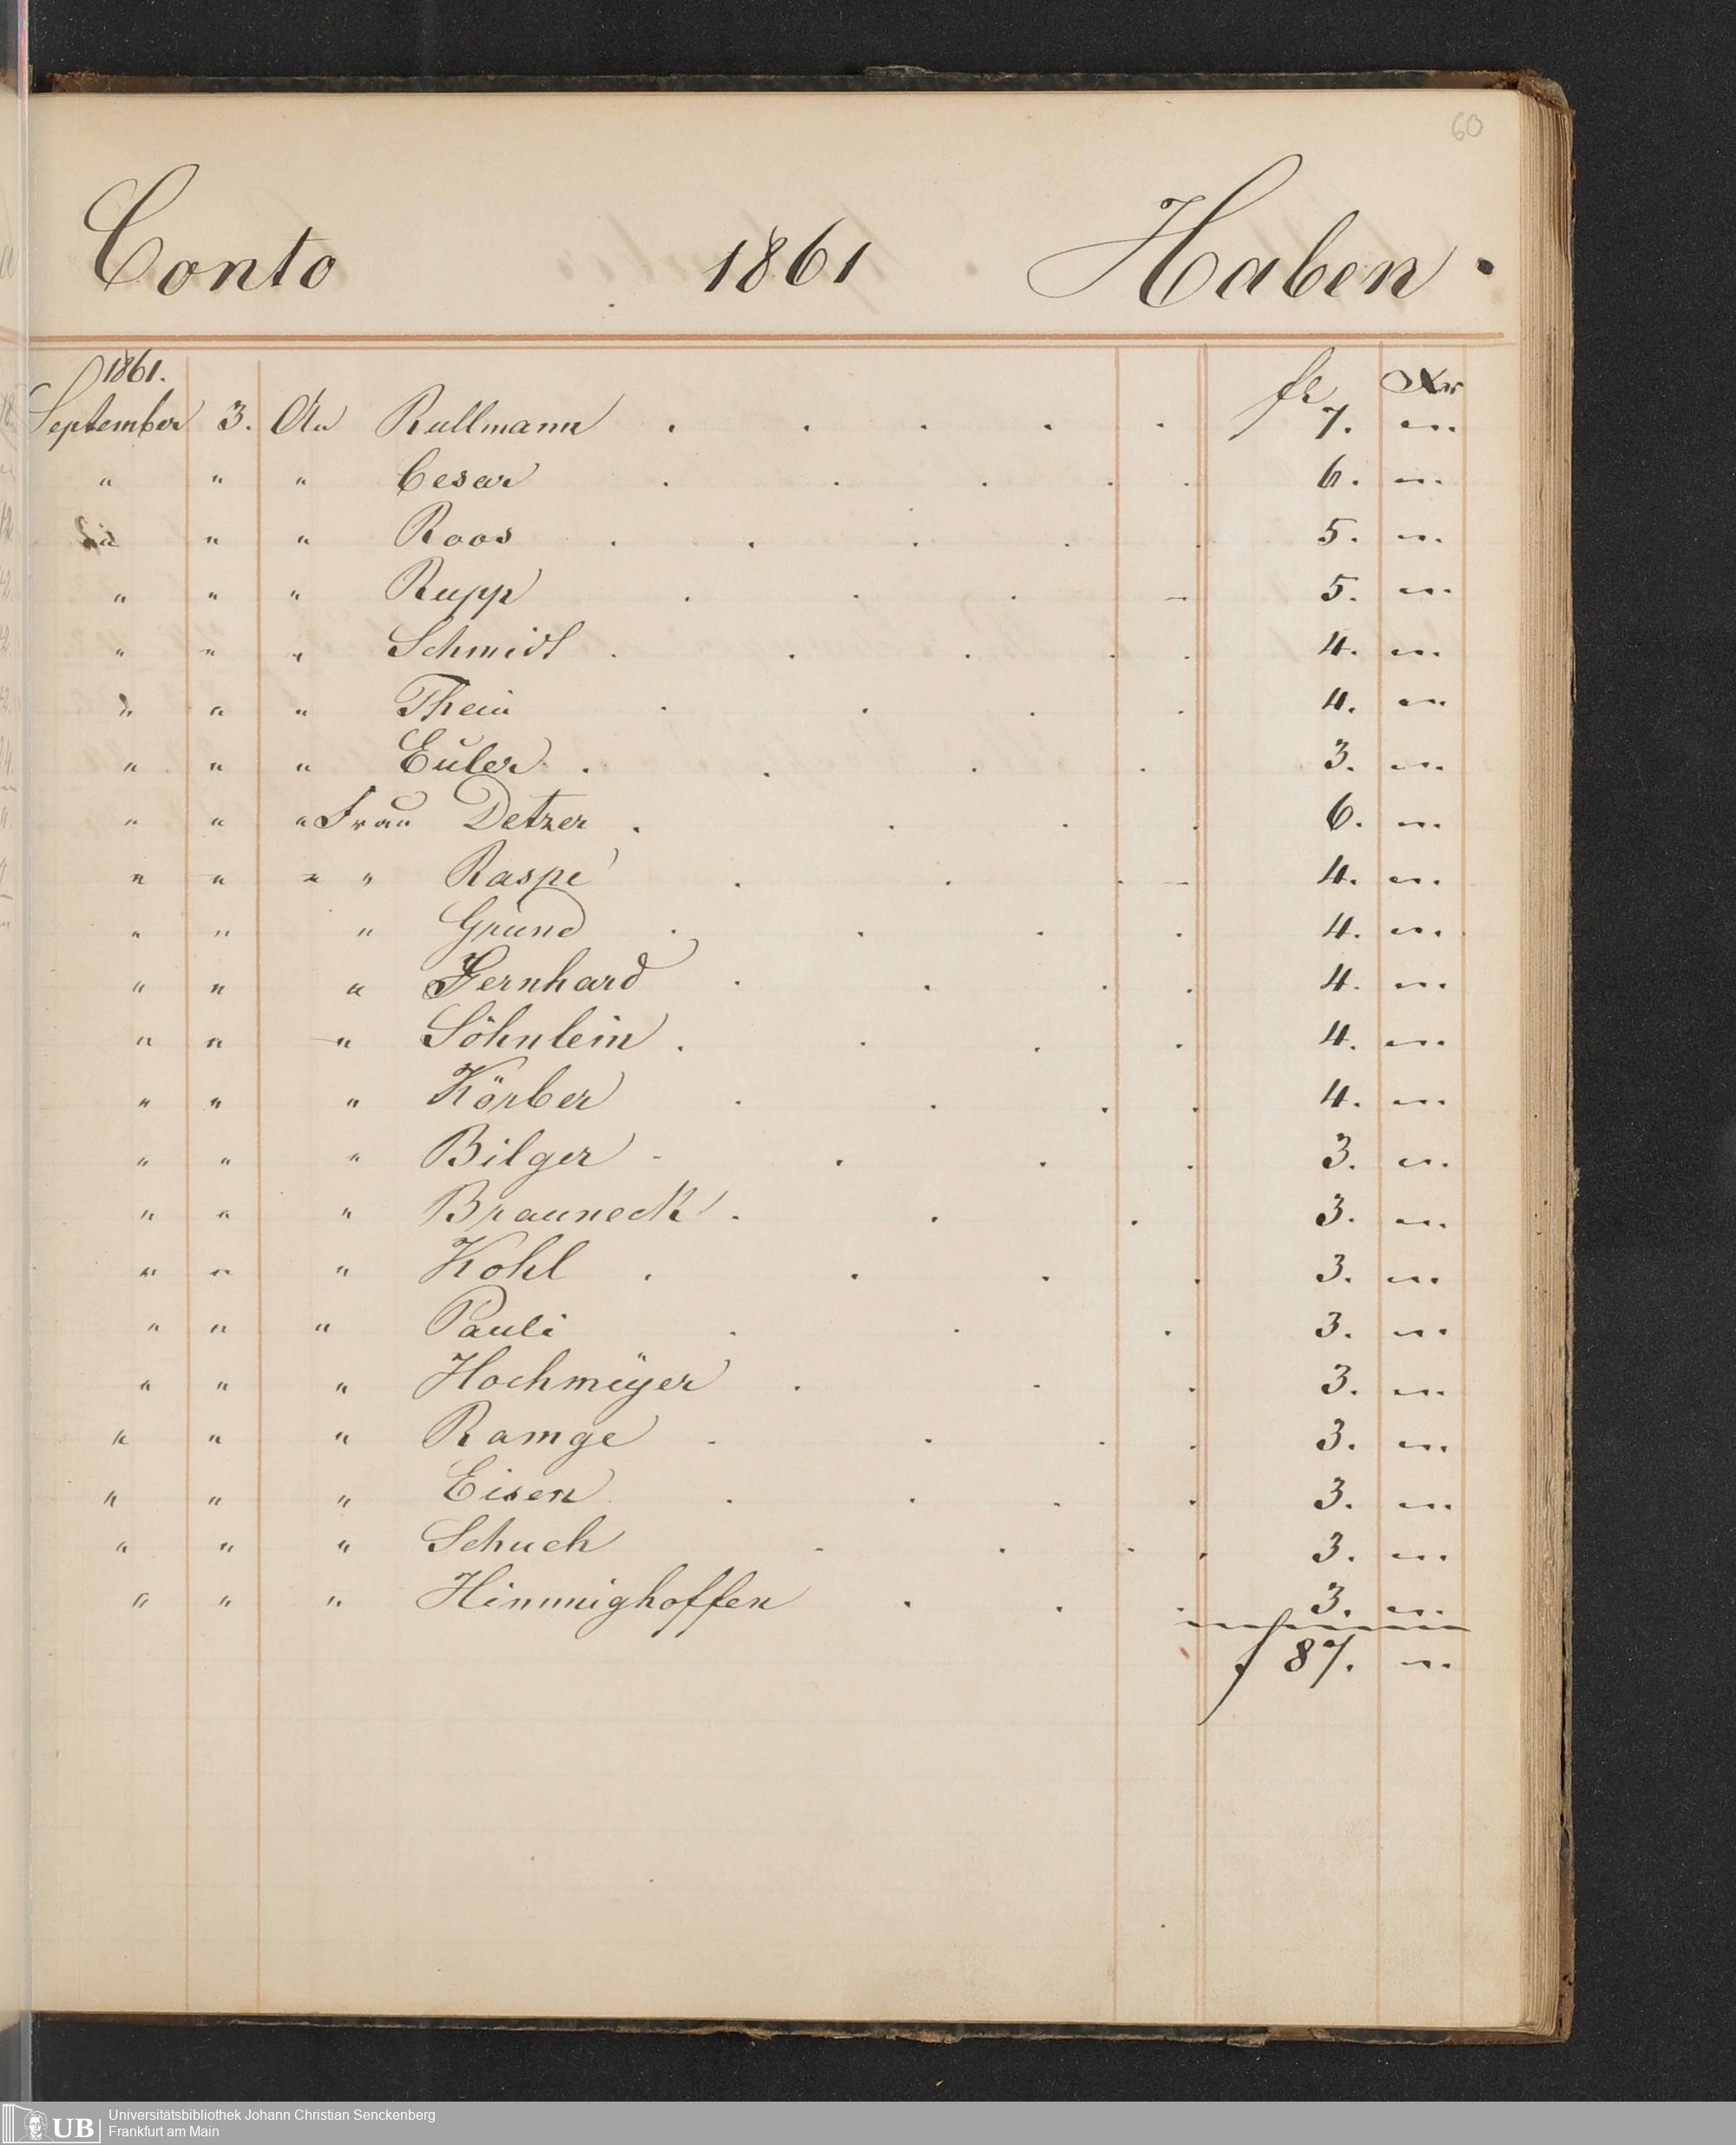 60
Conto 1861 Haben.
1861. fl Xr
September 3. An Rullmann . . . . . 7. „
„ „ „ Cesar . . . . . 6. „
„ „ „ Roos . . . . . 5. „
„ „ „ Rupp . . . 5. „
„ „ „ Schmidt . . . . . 4. „
„ „ „ Thein . . . . 4. „
„ „ „ Euler . . . . 3. „
„ „ „ Frau Detzer . . . . 6. „
„ „ „ „ Raspe . . . 4. „
„ „ „ Grund . . . . 4. „
„ „ „ Gernhard . . . . 4. „
„ „ „ Söhnlein . . . . 4. „
„ „ „ Körber . . . . 4. „
„ „ „ Bilger . . . . 3. „
„ „ „ Brauneck . . . 3. „
„ „ „ Kohl . . . . 3. „
„ „ „ Pauli . . . 3. „
„ „ „ Hochmeÿer . . . 3. „
„ „ „ Ramge . . . . 3. „
„ „ „ Eisen . . . . 3. „
„ „ „ Schuch . . . . 3. „
„ „ „ Himmighoffen . . . 3. „
f 87. „
UB
Universitätsbibliothek Johann Christian Senckenberg
Frankfurt am Main